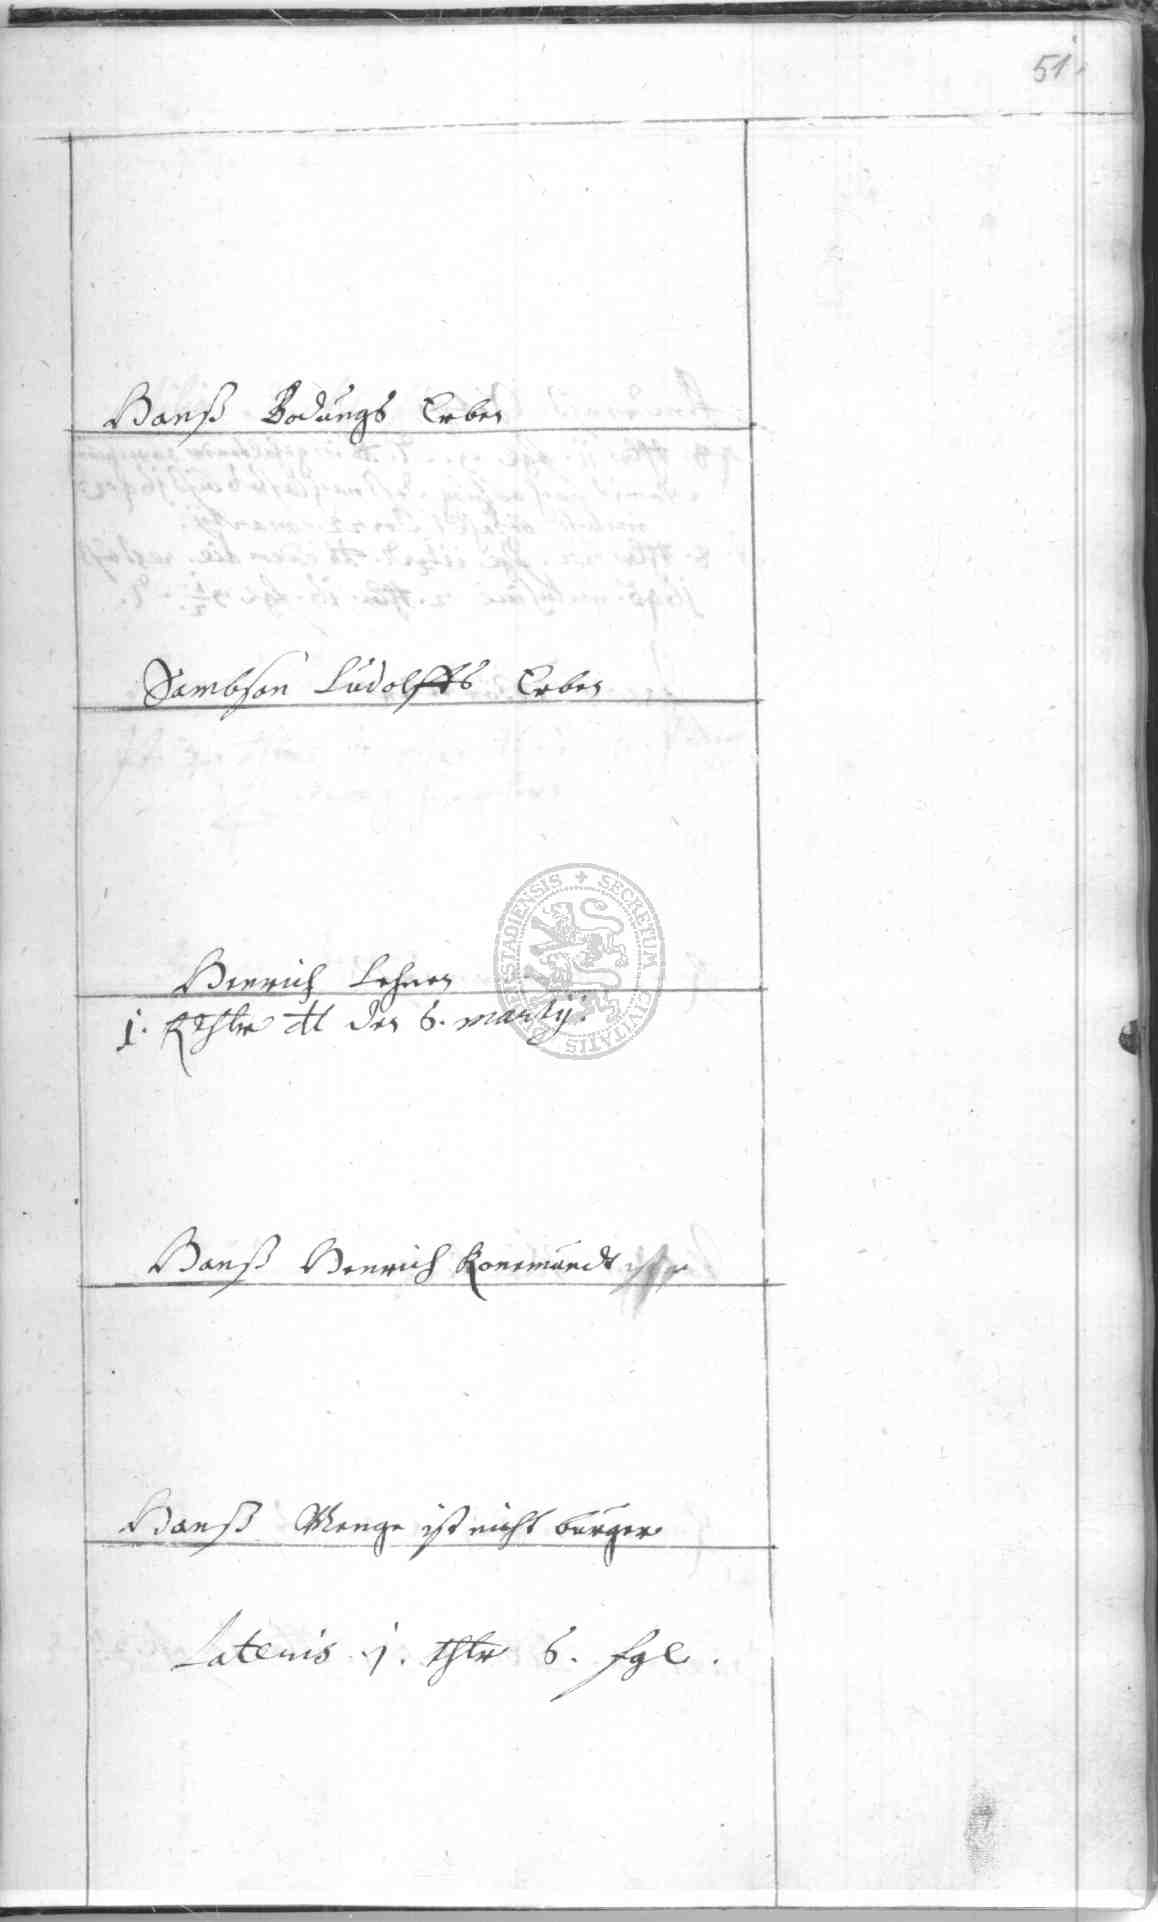 51.
Hanß Bodungs Erben
Sambson Ludolffs Erben
Henrich Lehnen
1. Rthlr dt den 6. martij.
Hanß Henrich Konemundt
Hanß Menge ist nicht burger
Lateris 1. thlr 6. sgl.
SECRETUM CIVITATIS